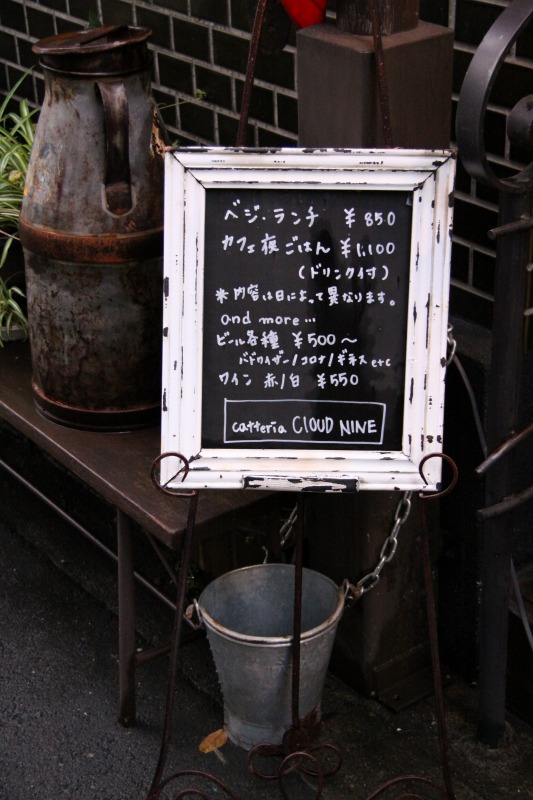 ベジ・ランチ ¥850
カフェ夜ごはん ¥1,100
(ドリンク付)
※内容は日によって異なります。
and more...
ビール各種 ¥500〜
バドワイザー/コロナ/ギネス etc
ワイン 赤/白 ¥550
cafferia CLOUD NINE